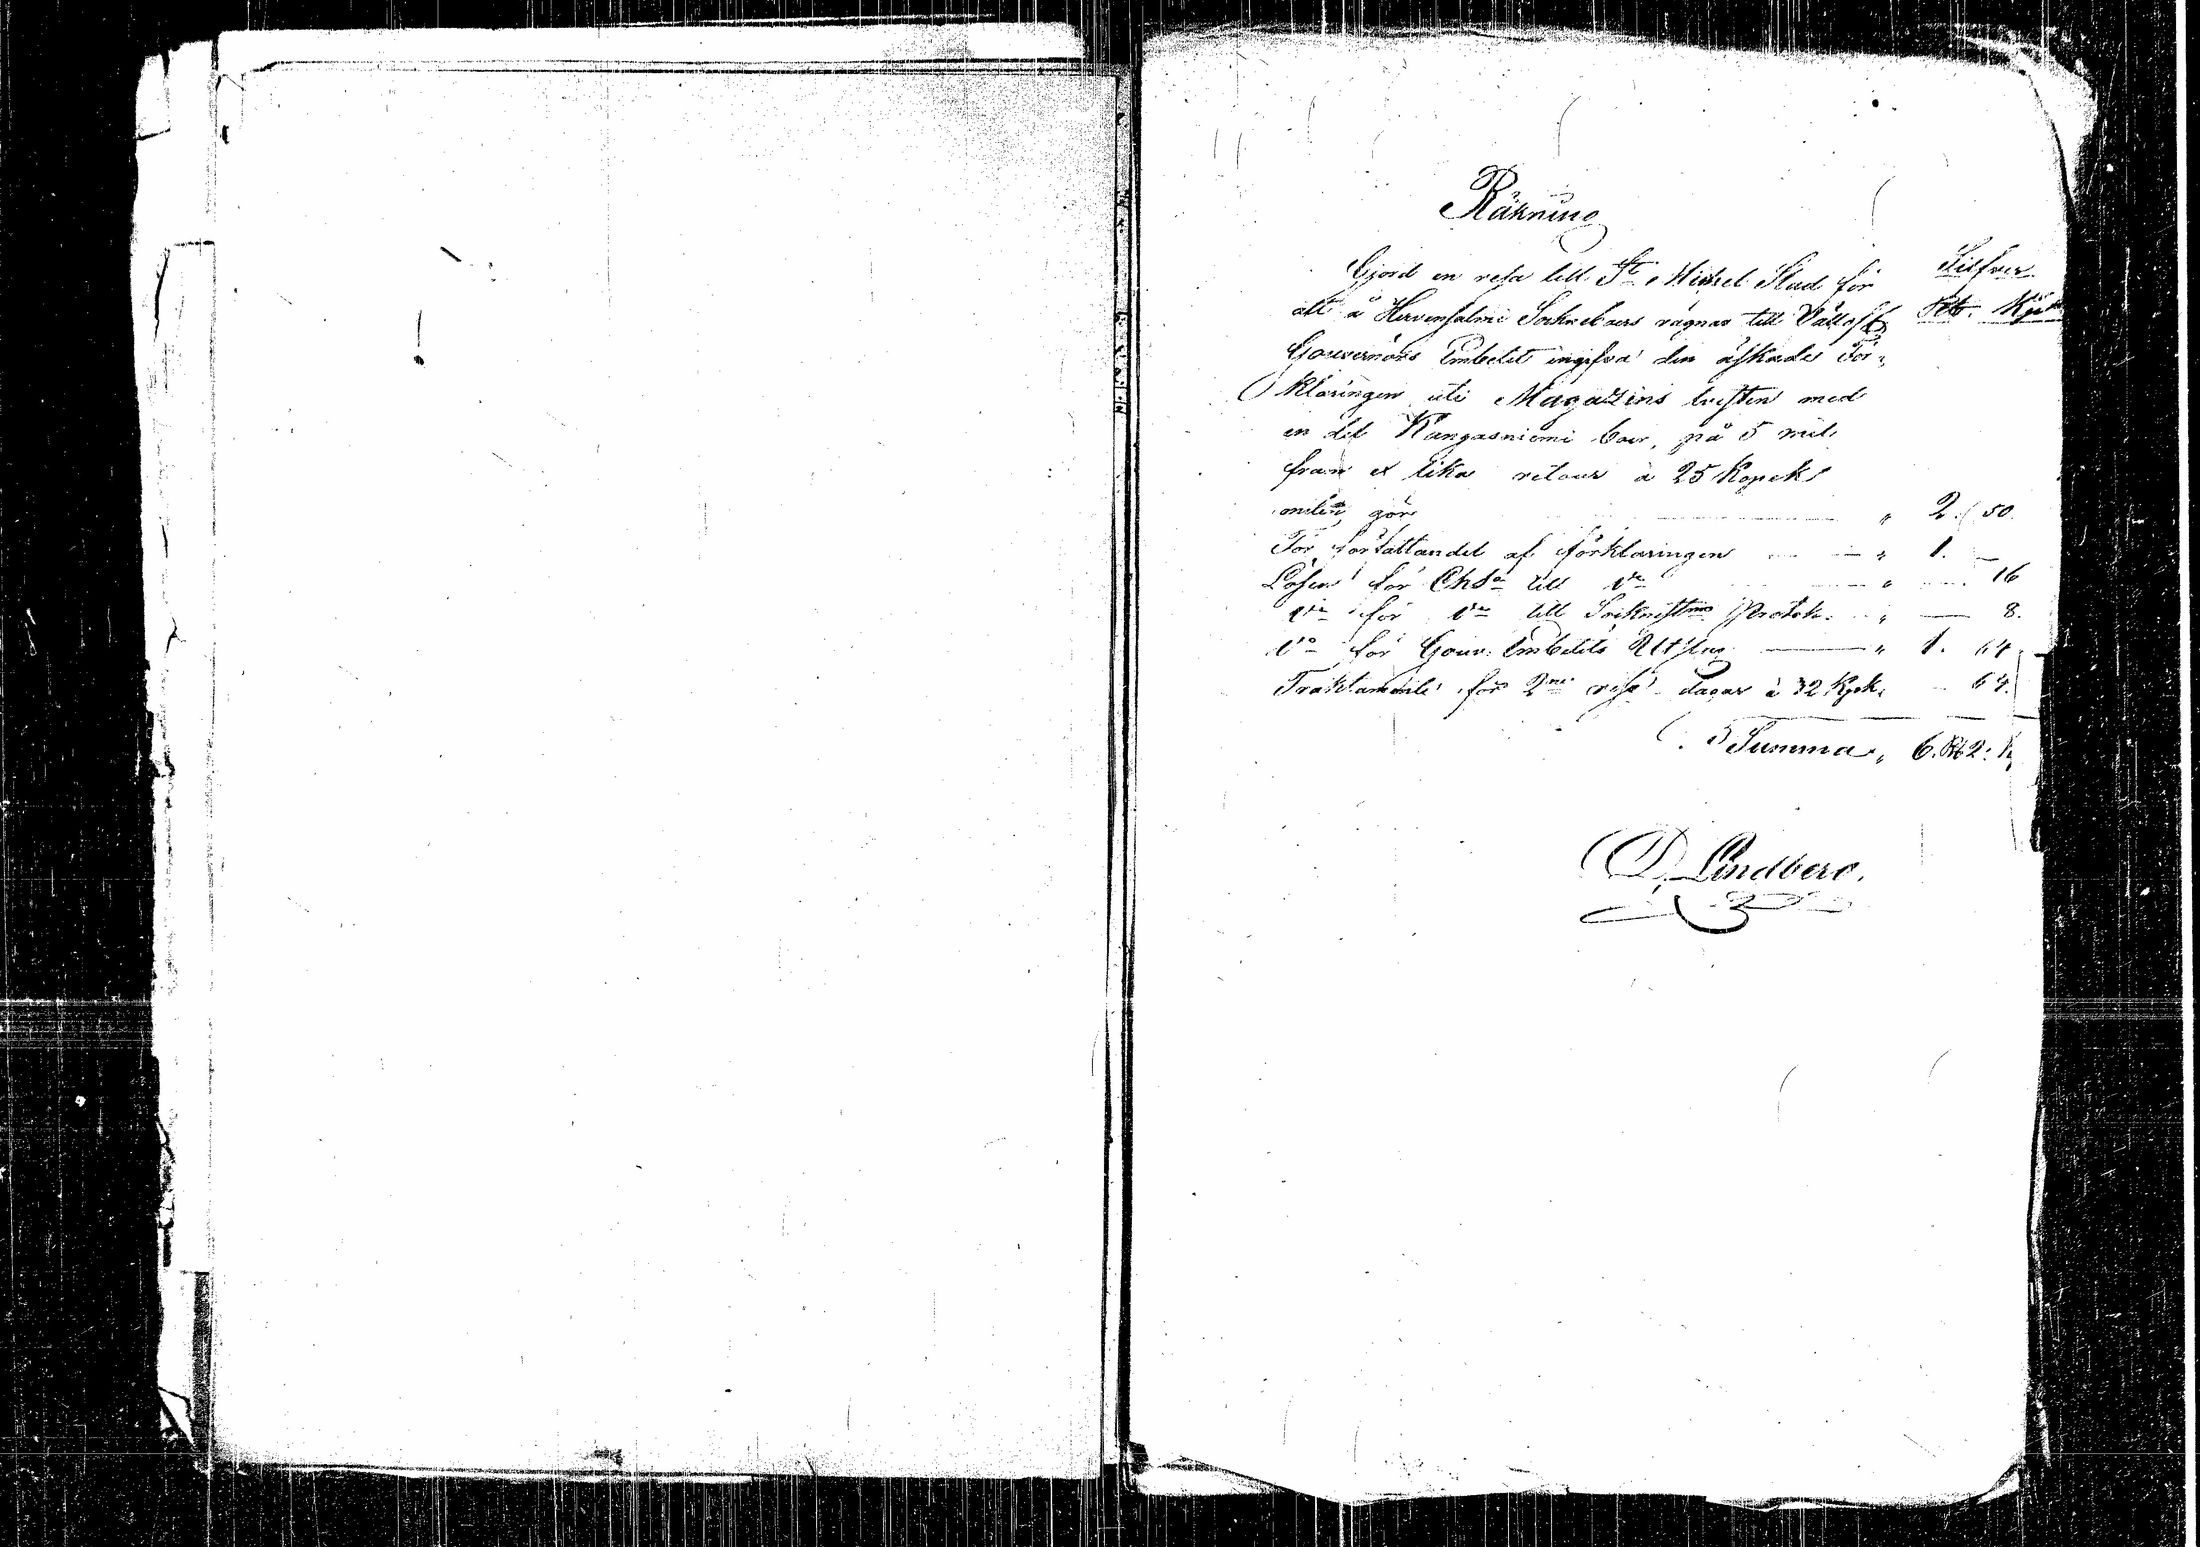 Räkning
Silfver.
Gjord en resa till St Michel Stad för
Rb. Kpk
att å Hirvensalmi Sockneboers vägnar till Vällofl.
Gouvernörs Embetet ingifva den äskade För-
klaringen uti Magazins tvisten med
en del Kangasniemi boer, på 5 mil
fram et lika retour à 25 Kopek
milen, gör " 2. 50.
För författandet af förklaringen " 1. —
Lösen för Chsa till do " — 16
do för do till Prot. " — 8.
do för Gouv. Embetets Utslag " 1. 64.
Traktamente för 2ne rese dagar à 32 Kpk. - 64.
Summa " 6. Rb 2. K
D. Lindberg.